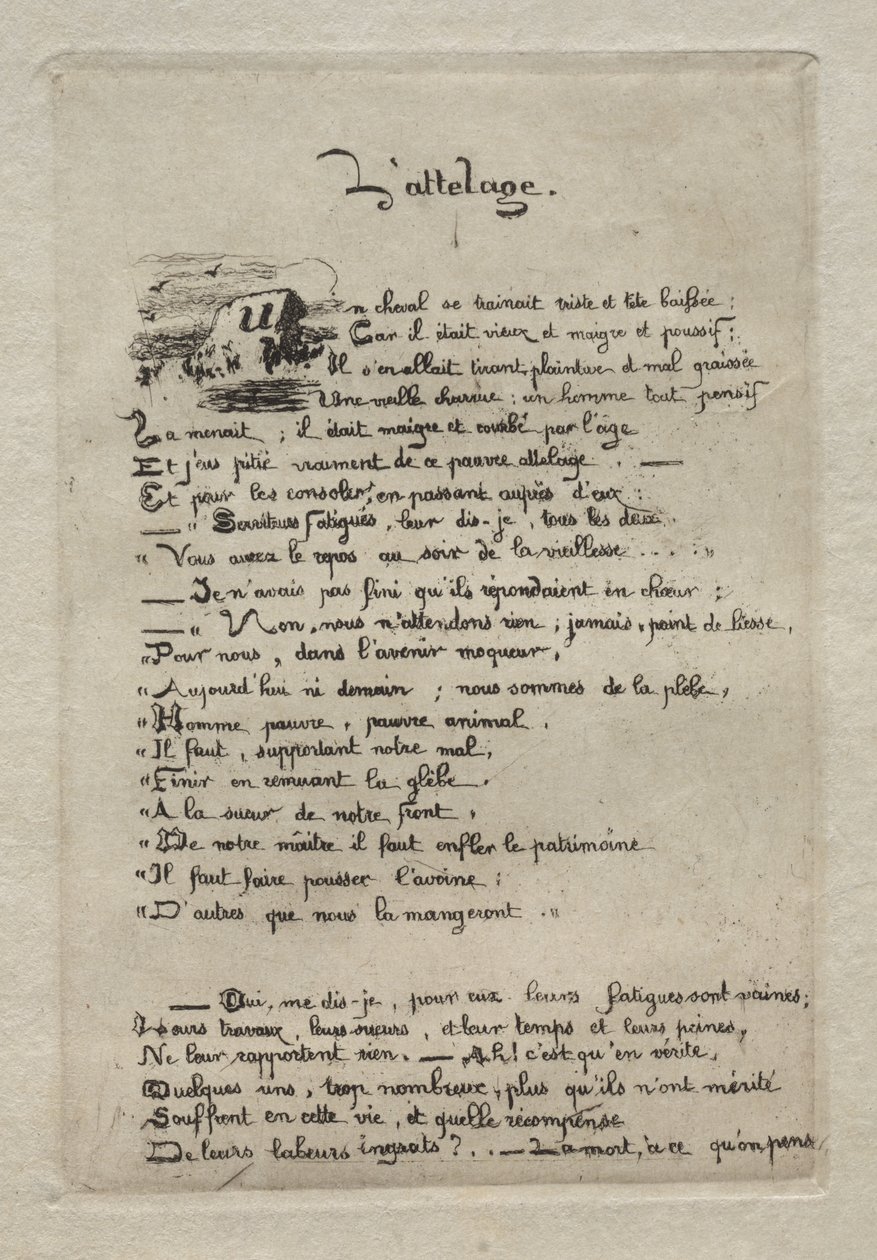 L'attelage.
Un cheval se trainait triste et tête baissée ;
Car il était vieux et maigre et poussif ;
Il s'en allait tirant, plaintive et mal graissée
Une vieille charrue ; un homme tout pensif
La menait ; il était maigre et courbé par l'âge
Et j'eus pitié vraiment de ce pauvre attelage . —
Et pour les consoler, en passant auprès d'eux :
— " Serviteurs fatigués, leur dis-je, tous les deux,
" Vous aurez le repos au soir de la vieillesse . . . . "
— Je n'avais pas fini qu'ils répondaient en chœur ;
— " Non, nous n'attendons rien ; jamais, point de liesse,
" Pour nous, dans l'avenir moqueur,
" Aujourd'hui ni demain ; nous sommes de la plèbe,
" Homme pauvre, pauvre animal,
" Il faut, supportant notre mal,
" Finir en remuant la glèbe.
" A la sueur de notre front,
" De notre maître il faut enfler le patrimoine
" Il faut faire pousser l'avoine ;
" D'autres que nous la mangeront . "
— Oui, me dis-je, pour eux leurs fatigues sont vaines ;
Leurs travaux, leurs sueurs, et leur temps et leurs peines,
Ne leur rapportent rien. — Ah! c'est qu'en vérité,
Quelques uns, trop nombreux, plus qu'ils n'ont mérité
Souffrent en cette vie, et quelle récompense
De leurs labeurs ingrats ? . . — La mort, à ce qu'on pense